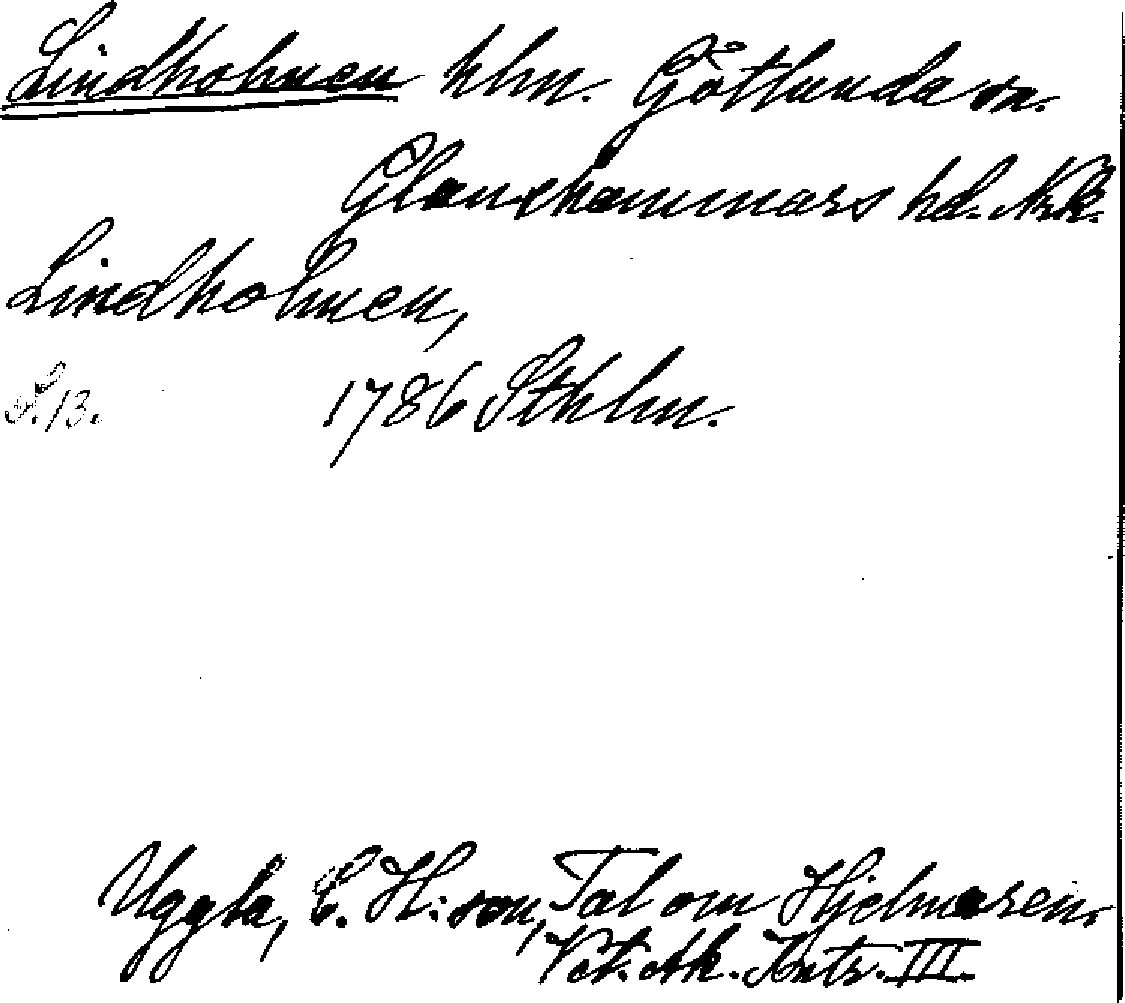 Lindholmen hlm. Götlunda sn.
Glanshammars hd. Nrk.
Lindholmen,
S. 13. 1786 Sthlm.
Uggla, C. H:son, Tal om Hjelmaren.
Vet. Ak. Hntr. III.